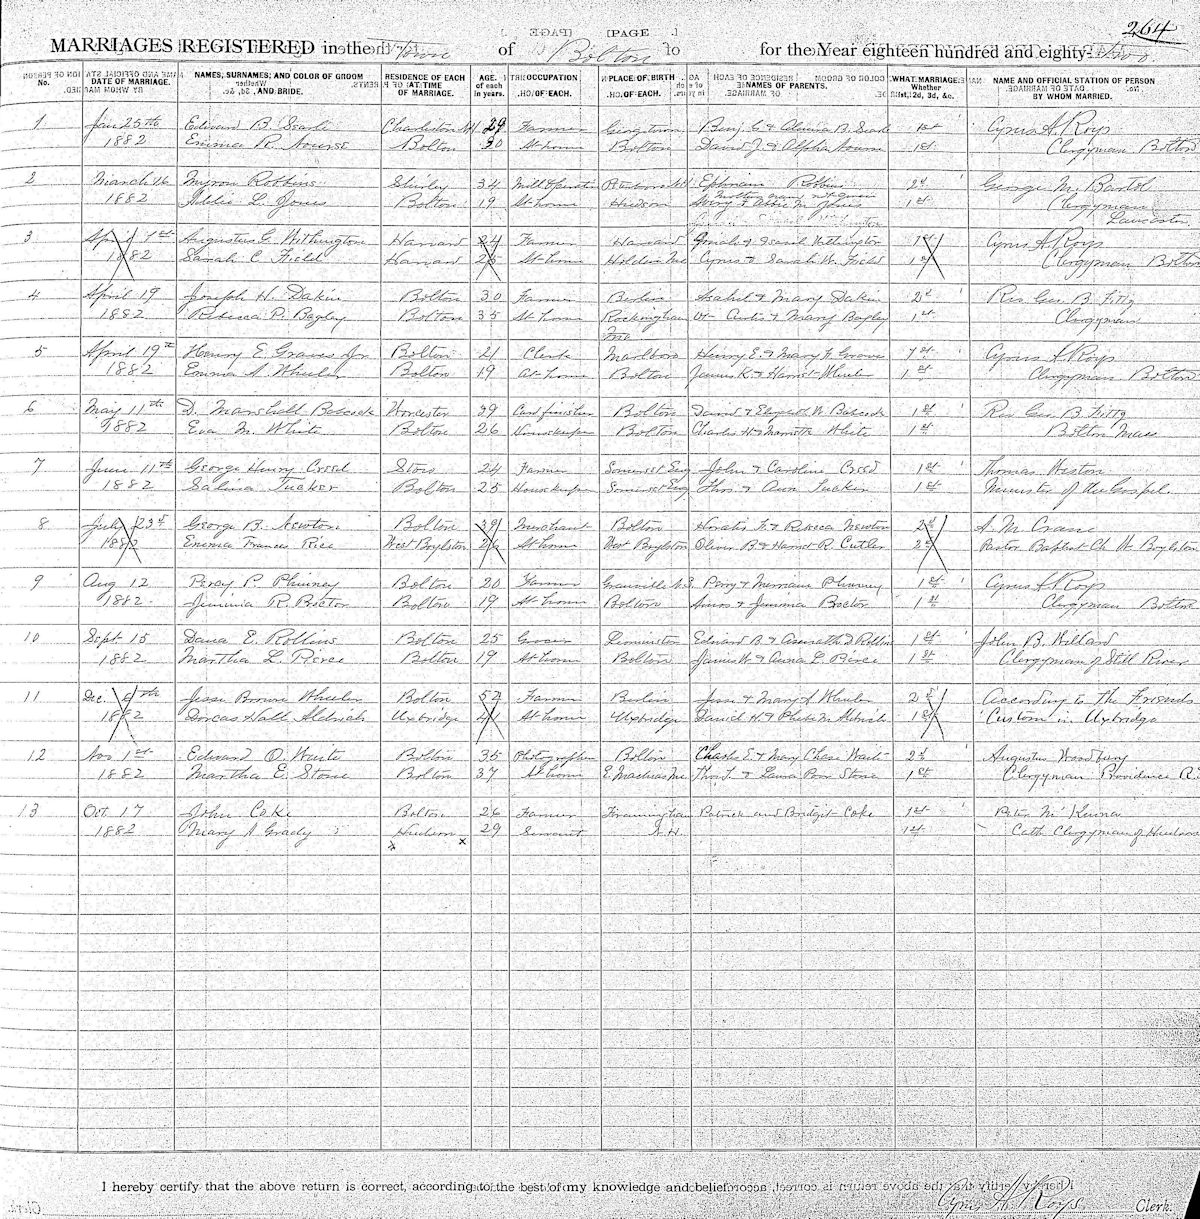 264
[PAGE ]
MARRIAGES REGISTERED in the Town of Bolton for the Year eighteen hundred and eighty-two
No. DATE OF MARRIAGE. NAMES, SURNAMES, AND COLOR OF GROOM AND BRIDE. RESIDENCE OF EACH AT TIME OF MARRIAGE. AGE. of each in years. OCCUPATION OF EACH. PLACE OF BIRTH OF EACH. NAMES OF PARENTS. WHAT MARRIAGE: Whether 1st, 2d, 3d, &c. NAME AND OFFICIAL STATION OF PERSON BY WHOM MARRIED.
1 Jan 25th Edward B. Searle Charlestown NH 29 Farmer Georgetown Benj. G. & B. Searle 1st Cyrus A. Roys
1882 Emma R. Nourse Bolton 30 At home Bolton David J. & Nourse 1st Clergyman Bolton
2 March 16 Myron Robbins Shirley 34 Mill Operative Ephraim Robbins 2d George M. Bartol
mother's name not given
1882 Addie L. Jones Bolton 19 At home Hudson M. Jones 1st Clergyman
Lancaster
3 April 1st Augustus G. Withington Harvard 24 Farmer Harvard & Withington 1st Cyrus A. Roys
1882 Sarah C. Field Harvard 25 At home Holden Me Cyrus & Sarah W. Field 1st Clergyman Bolton
4 April 19 Joseph H. Dakin Bolton 30 Farmer Berlin Asahel & Mary Dakin 2d Rev. Geo. B. Fittz
1882 Rebecca P. Bagley Bolton 35 At home Rockingham Curtis & Mary Bagley 1st Clergyman
5 April 19th Henry E. Graves Jr Bolton 21 Clerk Marlboro Henry E. & Mary F. Graves 1st Cyrus A. Roys
1882 Emma A. Wheeler Bolton 19 At home Bolton James K. & Harriet Wheeler 1st Clergyman Bolton
6 May 11th D. Marshall Babcock Worcester 29 Card finisher Bolton David & Elizabeth W. Babcock 1st Rev Geo. B. Fittz
1882 Eva M. White Bolton 26 Housekeeper Bolton Charles H & White 1st Bolton Mass
7 June 11th George Henry Creed Stow 24 Farmer Somerset Eng John & Caroline Creed 1st Thomas Weston
1882 Salina Tucker Bolton 25 Housekeeper Somerset Eng Thos. & Ann Tucker 1st Minister of the Gospel.
8 July 23d George B. Newton Bolton 39 Merchant Bolton Horatio F. & Rebecca Newton 2d A. M. Crane
1882 Emma Frances Rice West Boylston 26 At home West Boylston Oliver B & Harriet R. Cutler 2d Pastor Baptist Ch W. Boylston
9 Aug 12 Percy P. Phinney Bolton 20 Farmer Granville N.S. Perry & Phinney 1st Cyrus A. Roys
1882 Jimima R. Proctor Bolton 19 At home Bolton Amos & Jimima Proctor 1st Clergyman Bolton
10 Sept 15 Dana E. Rollins Bolton 25 Grocer Leominster Edward B. & D. Rollins 1st John B. Willard
1882 Martha L. Pierce Bolton 19 At home Bolton James W. & Anna L. Pierce 1st Clergyman of Still River
11 Dec 9th Jesse Brown Wheeler Bolton 52 Farmer Berlin Jesse & Mary A Wheeler 2d According to the Friends
1882 Dorcas Hall Aldrich Uxbridge 41 At home Uxbridge Daniel H. & Phebe M. Aldrich 1st Custom in Uxbridge
12 Nov 1st Edward O. Waite Bolton 35 Photographer Bolton Charles E. & Mary Chase Waite 2d Augustus Woodbury
1882 Martha E. Stone Bolton 37 At home E. Machias Me. Thos. J. & Laura Stone 1st Clergyman Providence R.I
13 Oct. 17 John Coke Bolton 26 Farmer Framingham Patrick and Bridgit Coke 1st Peter McKenna
1882 Mary A Grady Hudson 29 Servant N.H. 1st Cath. Clergyman of Hudson
I hereby certify that the above return is correct, according to the best of my knowledge and belief.
Cyrus A. Roys Clerk.